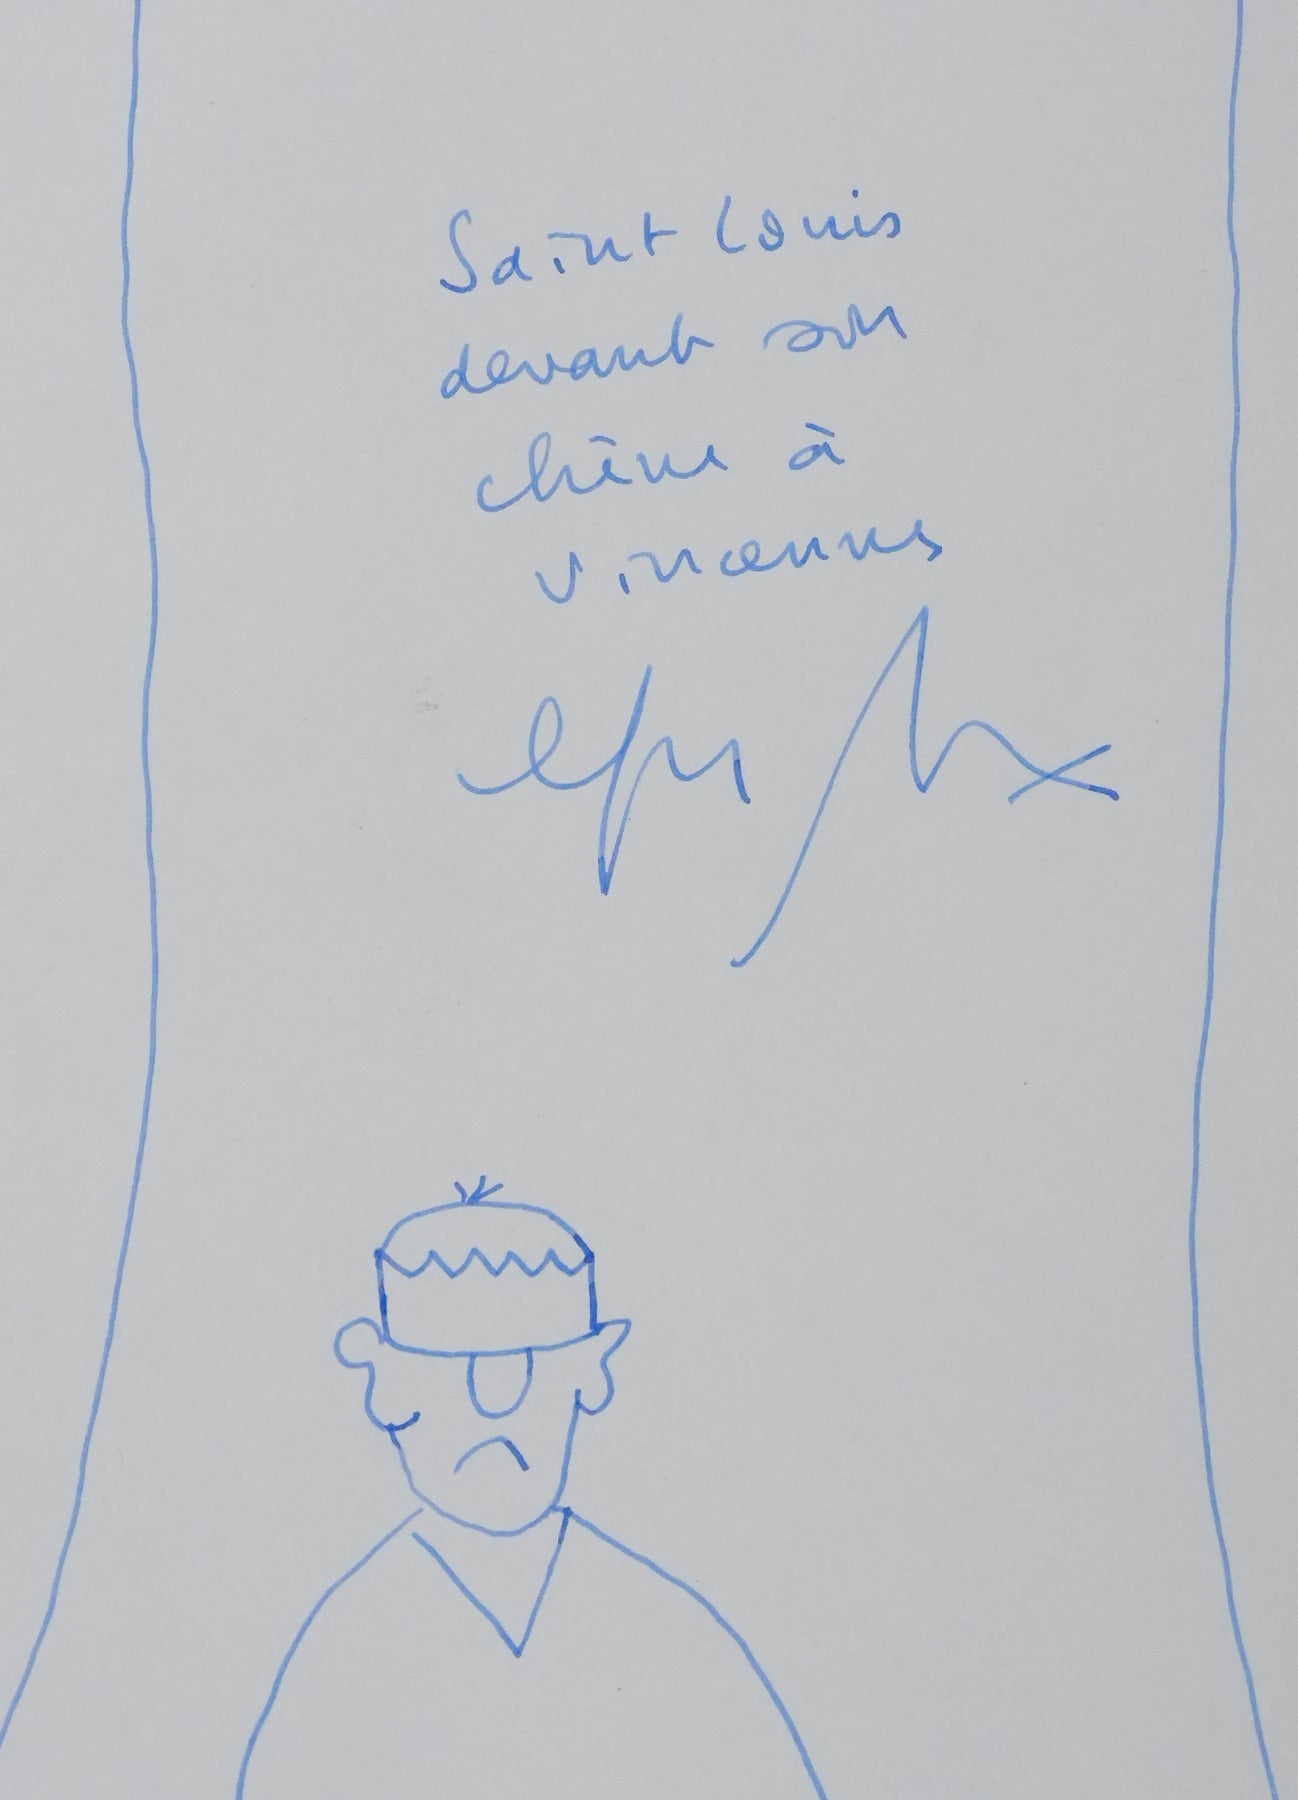 Saint Louis
devant son
chêne à
Vincennes